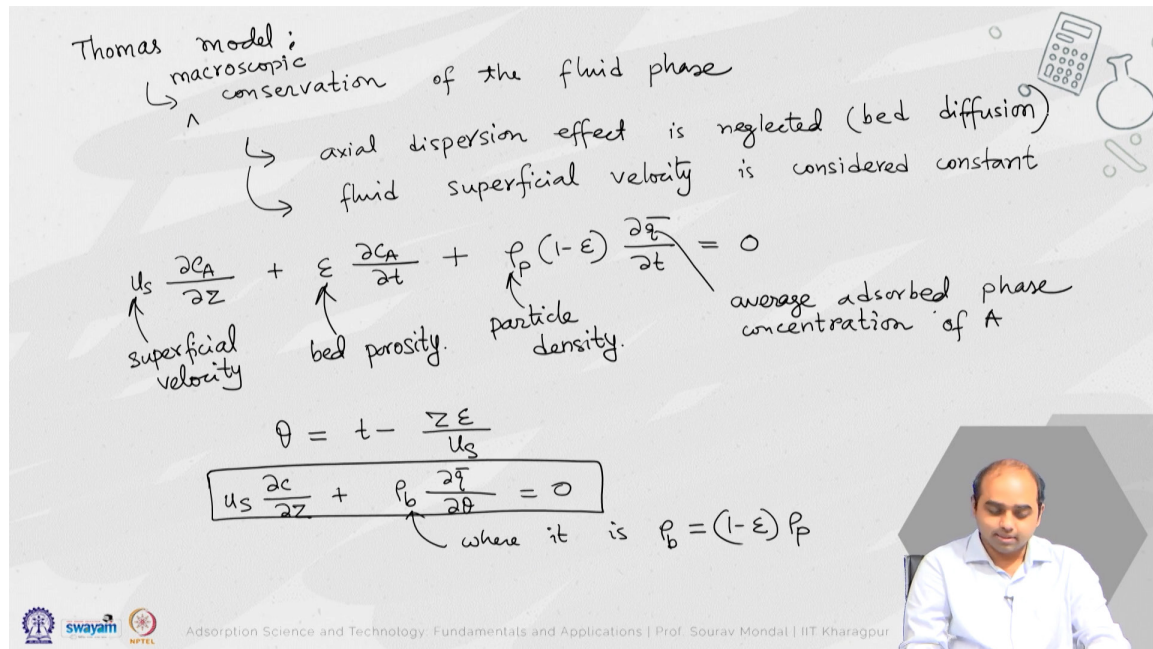 Thomas model :
macroscopic
↳ conservation of the fluid phase
^
↳ axial dispersion effect is neglected (bed diffusion)
↳ fluid superficial velocity is considered constant
u_s ∂C_A/∂z + ε ∂C_A/∂t + ρ_p (1-ε) ∂q̄/∂t = 0
superficial velocity
bed porosity.
particle density.
average adsorbed phase
concentration of A
θ = t - zε/u_s
u_s ∂c/∂z + ρ_b ∂q̄/∂θ = 0
where it is ρ_b = (1-ε) ρ_p
swayam
NPTEL
Adsorption Science and Technology: Fundamentals and Applications | Prof. Sourav Mondal | IIT Kharagpur